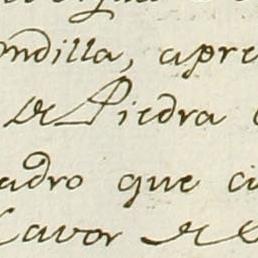 ondilla, apre
de Piedra
adro que
Lavor de